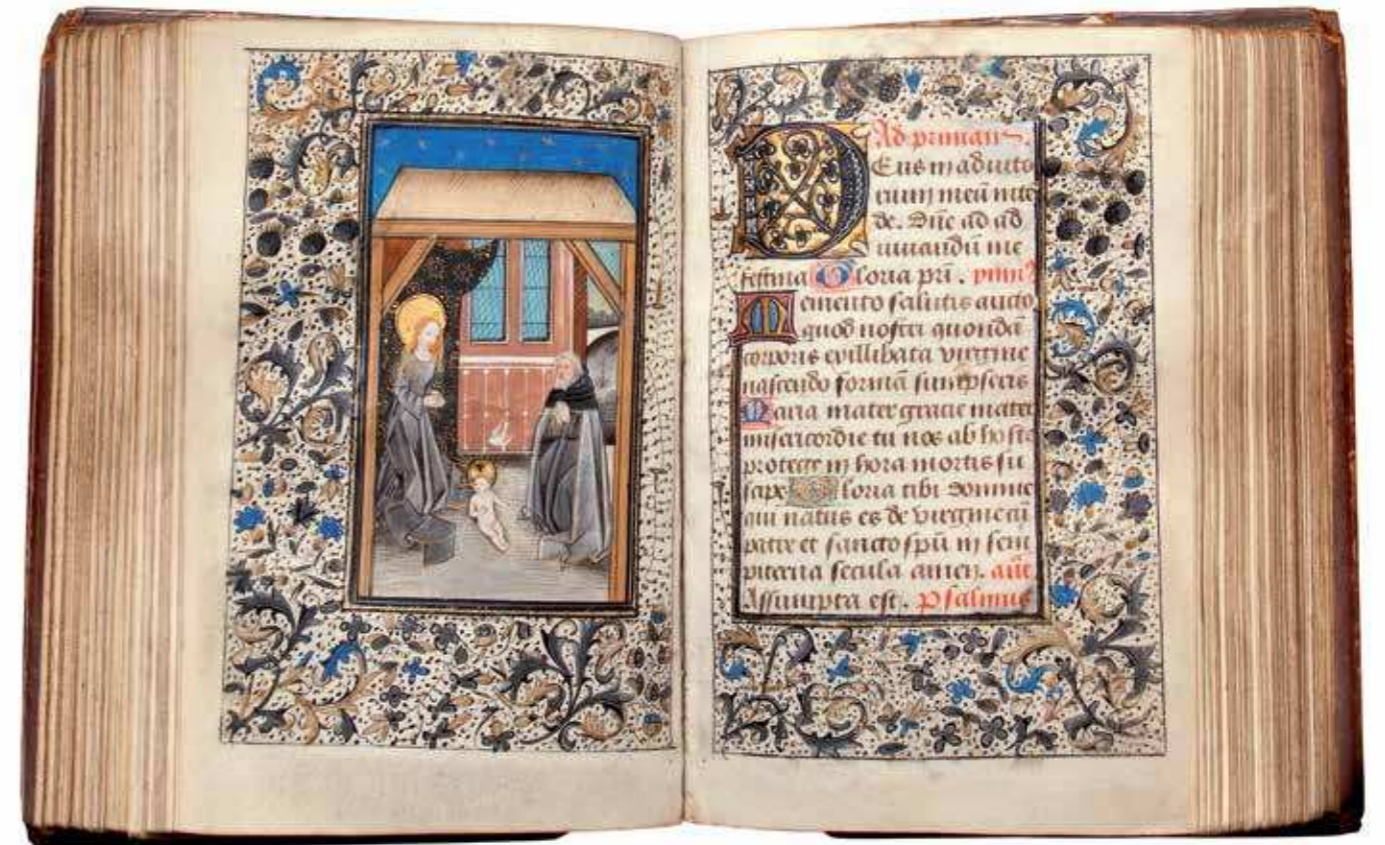 Ad primam.
Deus in adiuto
rium meū inte
de. Dn̄e ad ad
iuuandū me
festina Gloria pr̄i. ymn᷒
Memento salutis aucto
quod nostri quondā
corporis ex illibata virgine
nascendo formā sumpseris
Maria mater gracie mater
misericordie tu nos ab hoste
protege in hora mortis su
scipe Gloria tibi domine
qui natus es de virgine cū
patre et sancto spū in sem
piterna secula amen. an̄t
Assumpta est. Psalmus